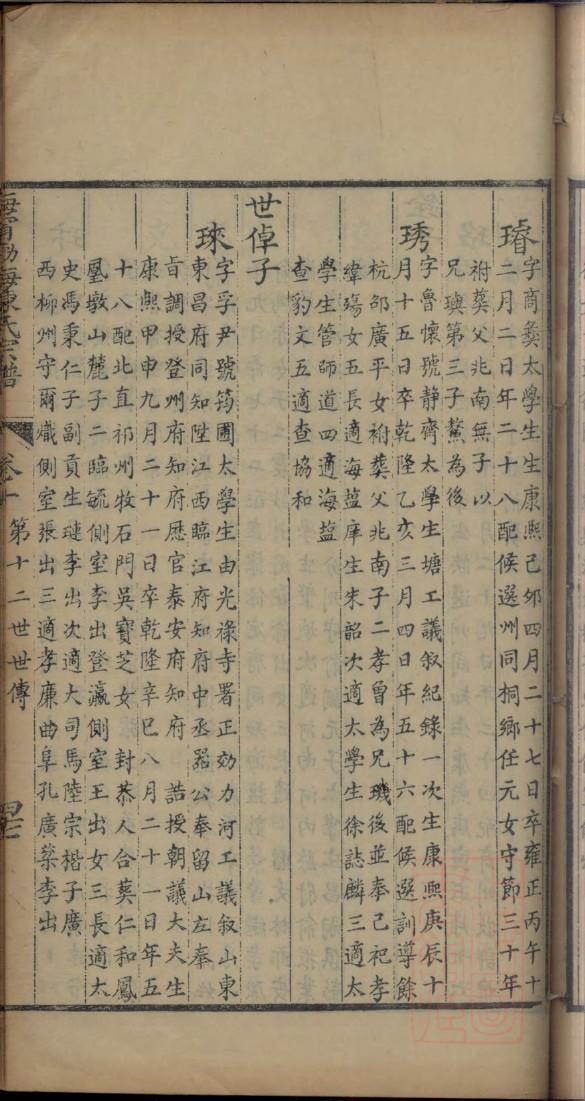 璿字商彝太學生生康熙己卯四月二十七日卒雍正丙午十
二月二日年二十八配候選州同桐鄉任元女守節三十年
祔葬父兆南無子以
兄璵第三子鰲為後
琇字魯懷號静齊太學生塘工議叙紀錄一次生康熙庚辰十
月十五日卒乾隆乙亥三月四日年五十六配候選訓導餘
杭邵廣平女祔葬父兆南子二孝曾為兄璣後並奉己祀孝
緯殤女五長適海盐庠生朱韶次適太學生徐誌麟三適太
學生管師道四適海盐
查豹文五適查協和
世倬子
琜字孚尹號筠圃太學生由光禄寺署正効力河工議叙山東
東昌府同知陞江西臨江府知府中丞噐公奉留山左奉
旨調授登州府知府歴官泰安府知府 誥授朝議大夫生
康熙甲申九月二十一日卒乾隆辛巳八月二十一日年五
十八配北直祁州牧石門吳寶芝女 封恭人合葵仁和鳳
凰墩山麓子二臨毓側室李出登瀛側室王出女三長適太
史馮秉仁子副貢生璉李出次適大司馬陸宗楷子廣
西柳州守爾熾側室張出三適孝廉曲阜孔廣棻李出
海寧渤海陳氏宗譜 卷十 第十二世世傳 四七